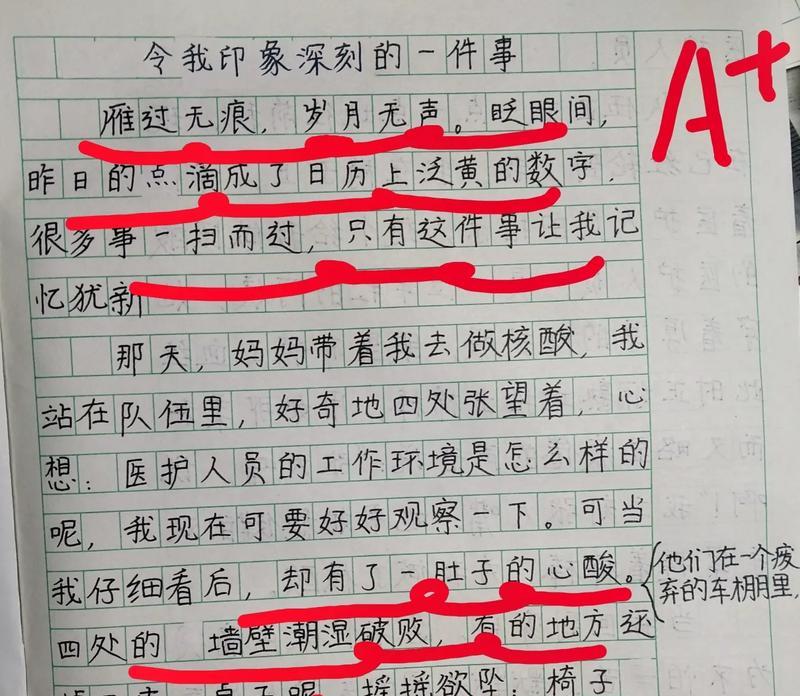 令我印象深刻的一件事
A+
雁过无痕，岁月无声。眨眼间，
昨日的点滴成了日历上泛黄的数字，
很多事一扫而过，只有这件事让我记
忆犹新
那天，妈妈带着我去做核酸，我
站在队伍里，好奇地四处张望着，心
想：医护人员的工作环境是怎么样的
呢，我现在可要好好观察一下。可当
我仔细看后，却有了一肚子的心酸。
他们在一个疲
弃的车棚里，
四处的 墙壁潮湿破败，有的地方还
摇摇欲坠；椅子